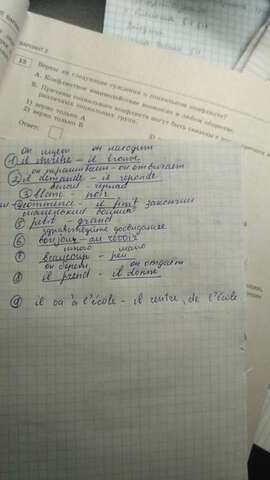 ВАРИАНТ 2
13 Верны ли следующие суждения о социальном конфликте?
А. Конфликтное взаимодействие возможно в любой обществе.
Б. Причины социального конфликта могут быть связаны с
различных социальных групп.
1) верно только А
2) верно только Б
Ответ:
он ищет он находит
① il cherche - il trouve
он спрашивает - он отвечает
② il demande - il reponde
белый - черный
③ blanc - noir
commence - il finit закончил
маленький большой
⑤ petit - grand
здравствуйте досвидание
⑥ bonjour - au revoir
много мало
⑦ beaucoup - peu
он берет он отдает
⑧ il prend - il donne
⑨ il va à l'école - il rentre, de l'école